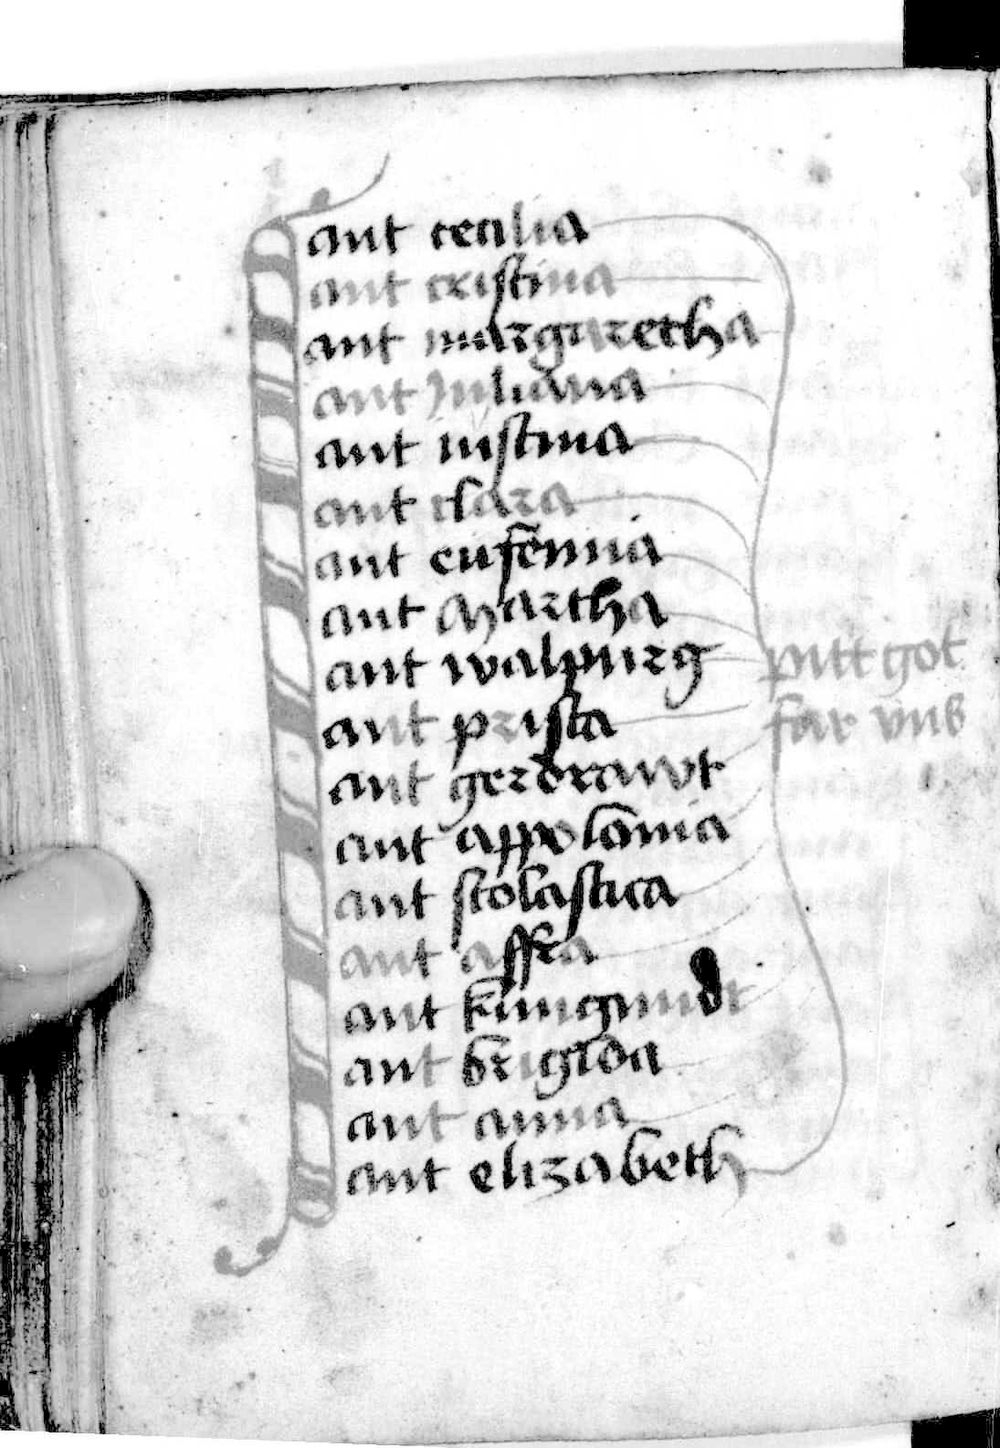 ant cecilia
ant cristina
ant margaretha
ant Juliana
ant iustina
ant clara
ant eufemia
ant Martha
ant walpurg
pitt got
ant prisca
far vns
ant gerdrawt
ant appolonia
ant scolastica
ant affra
ant kungundt
ant brigida
ant anna
ant elizabeth